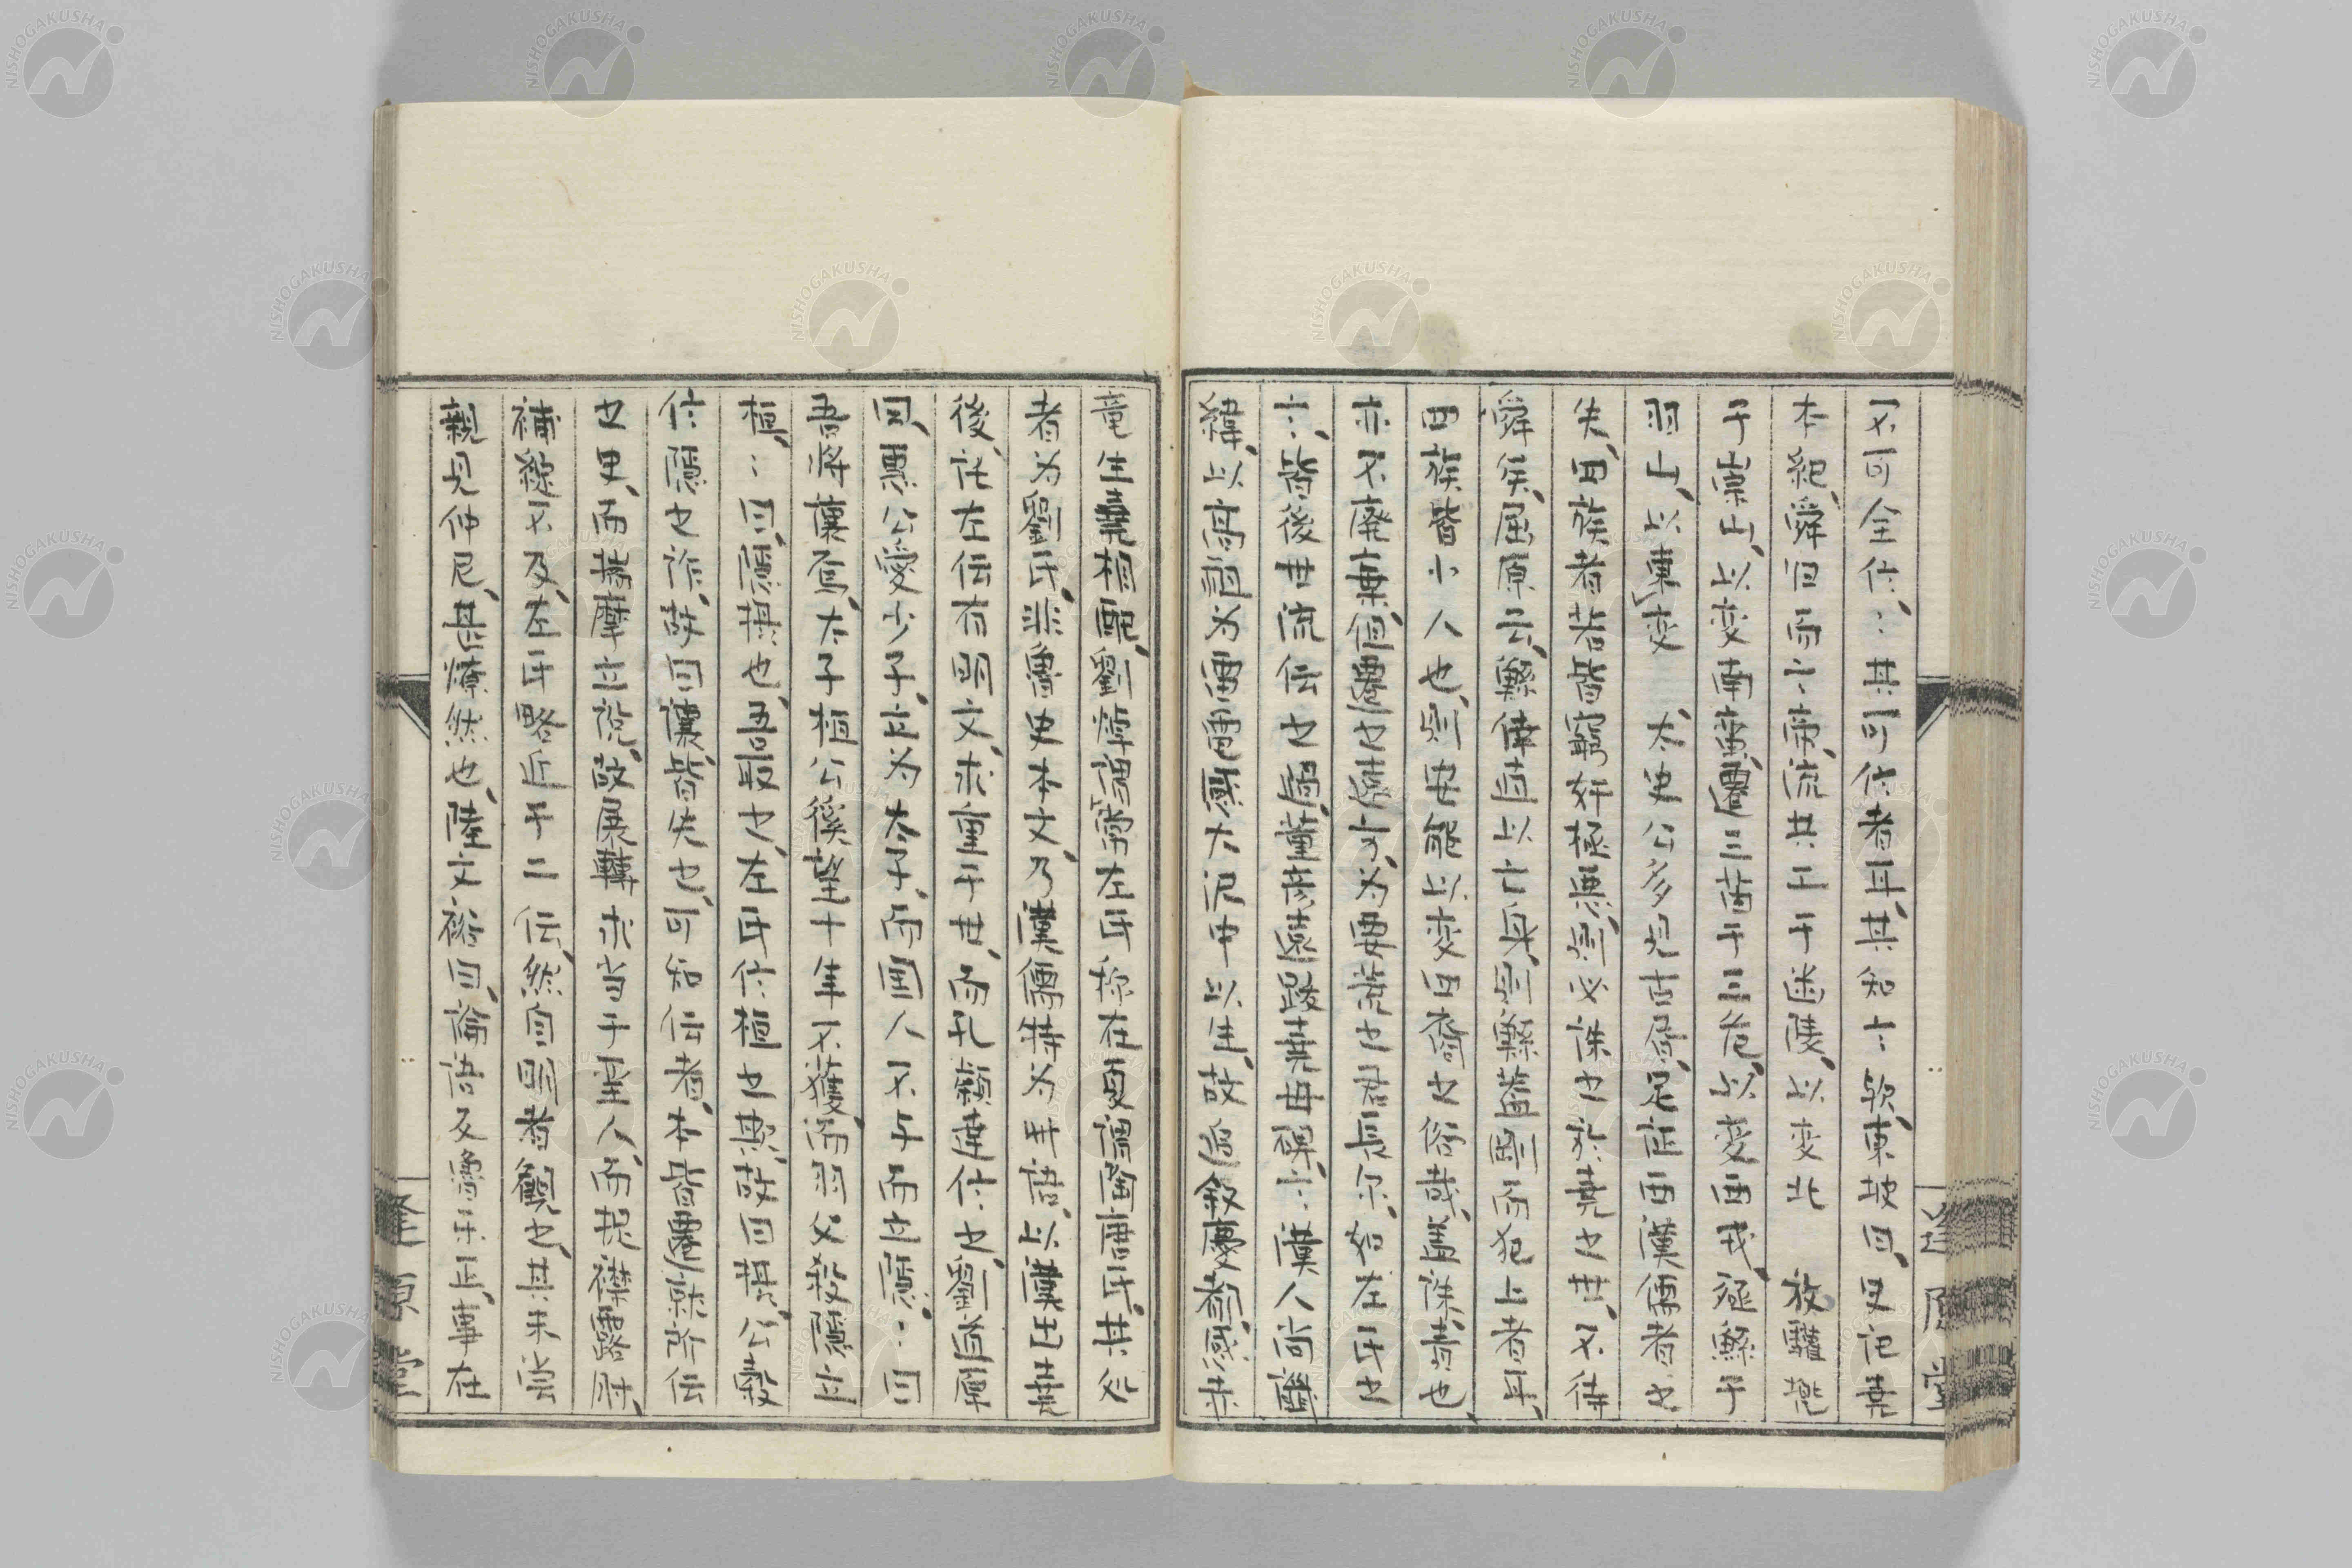 不可全信〻其可信者耳其知言歟東坡曰史記堯
本紀舜歸而言帝流共工于幽陵以変北 放驩兜
于崇山以変南蛮遷三苗于三危以変西戎殛鯀于
羽山以東変 太史公多見古居足証西漢儒者之
失四族者若皆窮奸極悪則必誅之於堯之世不待
舜矣屈原云鯀倖直以亡身則鯀蓋剛而犯上者耳
四族皆小人也則安能以変四裔之俗哉盖誅責也
亦不廃棄但遷之遠方為要荒之君長尔如左氏之
言皆後世流伝之過董彦遠跋堯母碑言漢人尚讖
緯以高祖為雷電感大沢中以生故 敘慶都感赤
竜生堯相配劉煒謂嘗左氏称在夏謂陶唐氏其処
者為劉氏非魯史本文乃漢儒特為此語以漢出堯
後託左伝有明文求重于世而孔穎達信之劉道原
曰恵公愛少子立為太子而国人不与而立隠〻曰
吾将讓焉太子桓公徯望十年不獲而羽父殺隠立
桓〻曰隠摂也吾取之左氏信桓之欺故曰摂公穀
信隠之詐故曰讓皆失之可知伝者本皆遷就所伝
之史而揣摩立説故展轉求当于聖人而捉襟露肘
補綴不及左氏略近于二伝然自明者観之其未嘗
親見仲尼甚燎然也陸文裕曰論語及魯未正事在
NISHOGAKUSHA